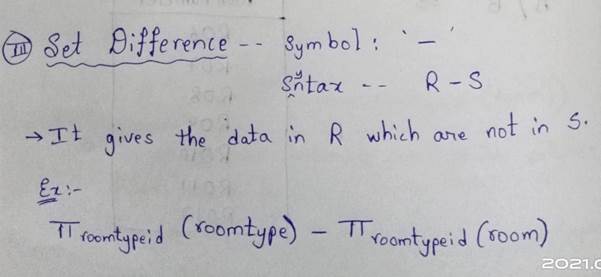 III Set Difference -- Symbol : '-'
Syntax -- R - S
→ It gives the data in R which are not in S.
Ex:-
π roomtypeid (roomtype) - π roomtypeid (room)
2021.0